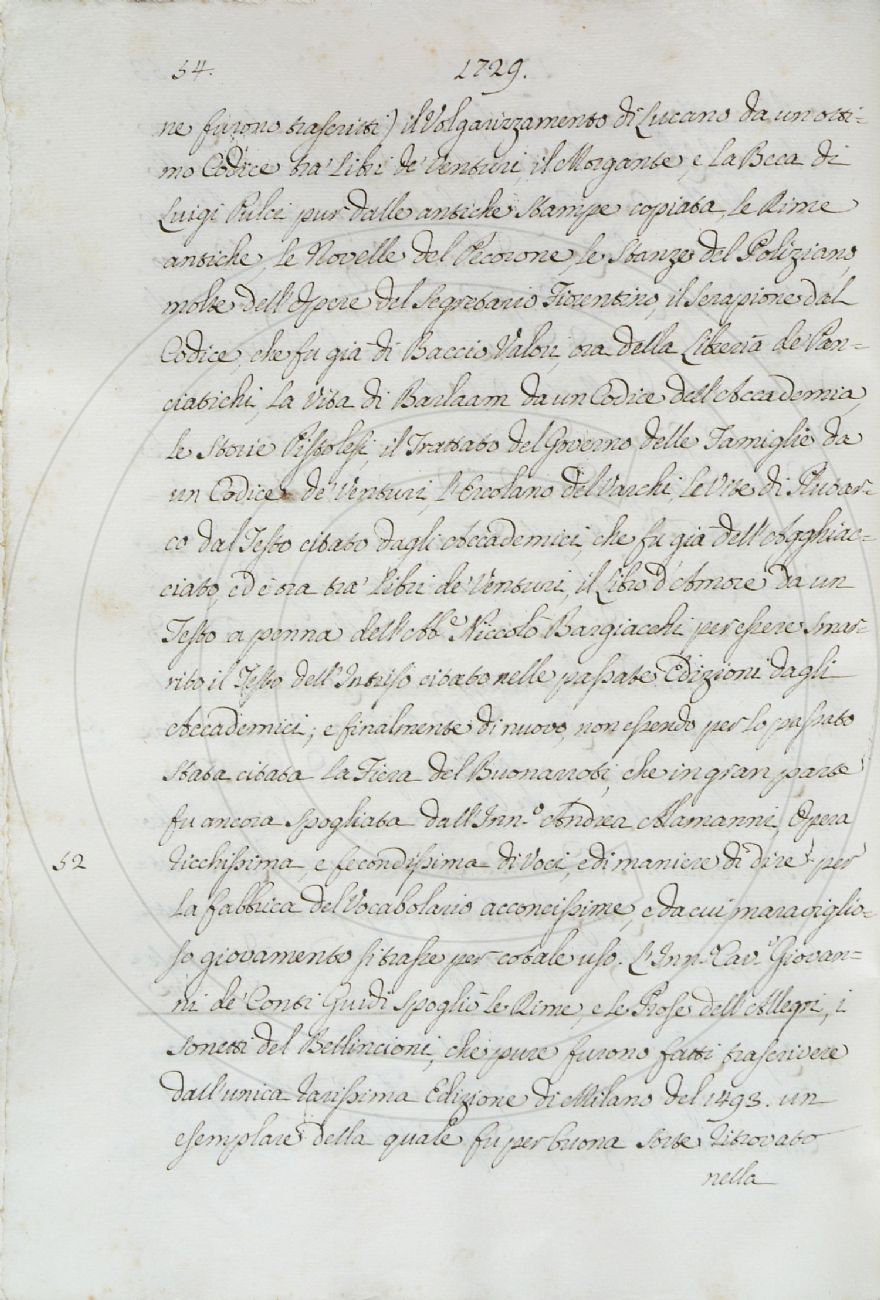 54.
1729.
ne furono trascritti) il Volgarizzamento di Lucano da un otti=
mo Codice tra' Libri de' Venturi, il Morgante, e la Beca di
Luigi Pulci pur dalle antiche stampe copiata, le Rime
antiche, le Novelle del Pecorone, le Stanze del Poliziano,
molte dell'Opere del Segretario Fiorentino, il Serapione dal
Codice, che fu già di Baccio Valori, ora della Libreria de' Pan=
ciatichi, la Vita di Barlaam da un Codice dell'Accademia,
le Storie Pistolesi, il Trattato del Governo delle Famiglie da
un Codice de' Venturi, l'Ercolano del Varchi, le Vite di Plutar=
co dal Testo citato dagli Accademici, che fu già dell'Agghiac=
ciato, ed è ora tra' Libri de' Venturi, il Libro d'Amore da un
Testo a penna dell'Ab.e Niccolò Bargiacchi per essere smar=
rito il Testo dell'Intriso citato nelle passate Edizioni dagli
Accademici; e finalmente di nuovo, non essendo per lo passato
stata citata la Fiera del Buonarroti, che in gran parte
fu ancora spogliata dall'Inn.o Andrea Alamanni, Opera
52
ricchissima, e fecondissima di Voci, e di maniere di dire per
la fabbrica del Vocabolario acconcissime, e da cui maraviglio=
so giovamento si trasse per cotale uso. L'Inn.o Cav.r Giovan=
ni de' Conti Guidi spogliò le Rime, e le Prose dell'Allegri, i
Sonetti del Bellincioni, che pure furono fatti trascrivere
dall'unica rarissima Edizione di Milano del 1493. un
esemplare della quale fu per buona sorte ritrovato
nella